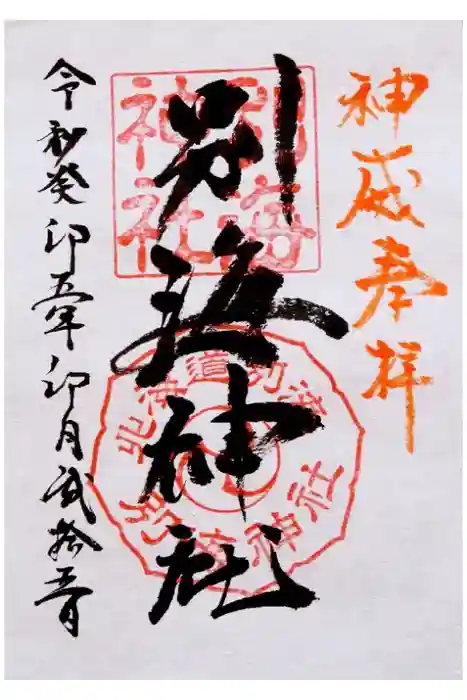 神威奉拝
別海神社
令和癸卯五年卯月弐拾五日
別海神社
北海道別海
別海神社